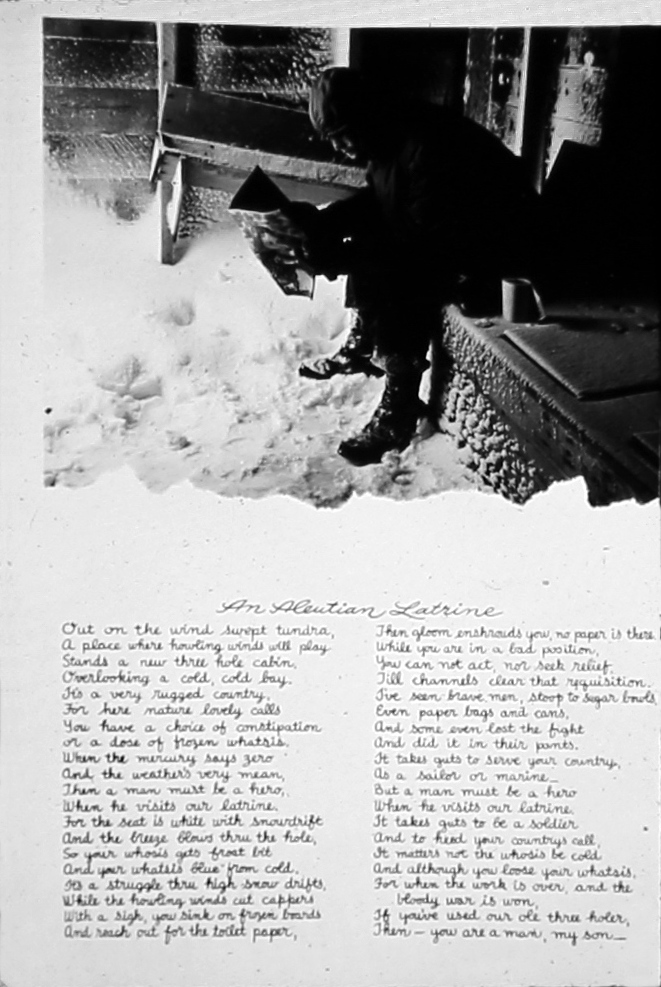 An Aleutian Latrine
Out on the wind swept tundra,
A place where howling winds will play
Stands a new three hole cabin,
Overlooking a cold, cold bay.
It's a very rugged country,
For here nature lovely calls
You have a choice of constipation
or a dose of frozen whatsis.
When the mercury says zero
And the weather's very mean,
Then a man must be a hero,
When he visits our latrine.
For the seat is white with snowdrift
And the breeze blows thru the hole,
So your whosis gets frost bit
And your whatsis blue from cold.
It's a struggle thru high snow drifts,
While the howling winds cut cappers
With a sigh, you sink on frozen boards
And reach out for the toilet paper,
Then gloom enshrouds you, no paper is there.
While you are in a bad position,
You can not act, nor seek relief.
Till channels clear that requisition.
I've seen brave men, stoop to sugar bowls,
Even paper bags and cans,
And some even lost the fight
And did it in their pants.
It takes guts to serve your country,
As a sailor or marine—
But a man must be a hero
When he visits our latrine.
It takes guts to be a soldier
And to heed your countrys call,
It matters not the whosis be cold
And although you loose your whatsis,
For when the work is over, and the
bloody war is won,
If you've used our ole three holer,
Then — you are a man, my son—